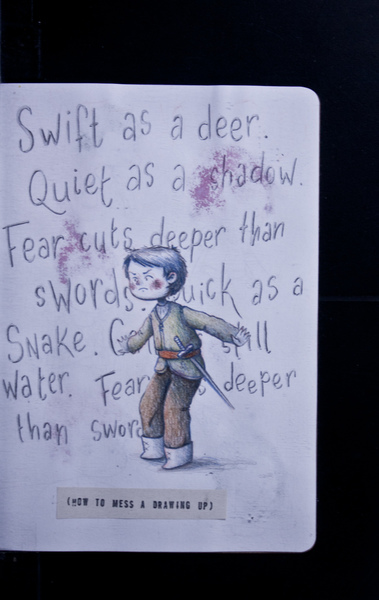 Swift as a deer.
Quiet as a shadow.
Fear cuts deeper than
swords. Quick as a
Snake. still
water. Fear deeper
than
(HOW TO MESS A DRAWING UP)